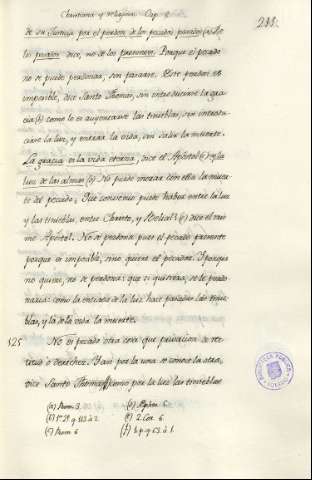 Christiana y religiosa. Cap. 8.
211.
de su Justicia por el perdon de los pecados pasados (a) De
los pasados dice, no de los presentes. Porque el pecado
no se puede perdonar, sin pasarse. Este perdon es
imposible, dice Santo Thomas, sin entrar la gra
cia (b) como lo es ausentarse las tinieblas, sin introdu
cirse la luz, y entrar la vida, sin salir la muerte.
La gracia es la vida eterna, dice el Apóstol (c) y la
luz de las almas (d) No puede morar con ella la muer
te del pecado; Que convenio puede haber entre la luz
y las tinieblas, entre Christo, y Belial? (e) dice el mis
mo Apóstol. No se perdona pues el pecado presente
porque es imposible, sino quiere el pecador. Y porque
no quiere, no se perdona: que si quisiera, se le perdo
naria: como la entrada de la luz hace pasadas las tinie
blas, y la de la vida la muerte.
525 No es pecado otra cosa que privacion de rec
titud o derechez. Y asi por la una se conoce la otra,
dice Santo Thomas como por la luz las tinieblas
(a) Rom. 3.
(b) 1ª 2ª q. 113 a 2.
(c) Rom 6
(d) Ephes. 5.
(e) 2 Cor. 6.
(f) 1. p. q.
BIBLIOTECA PUBLICA
TOLEDO